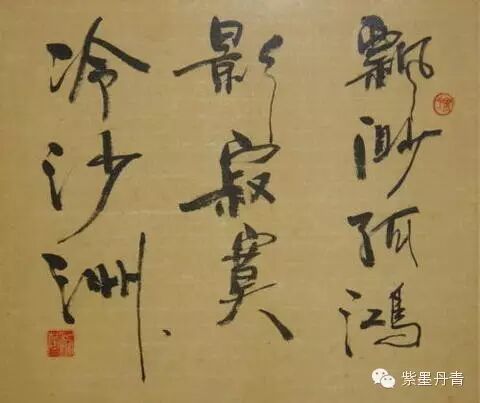 飘渺孤鸿
影寂寞
冷沙洲
紫墨丹青